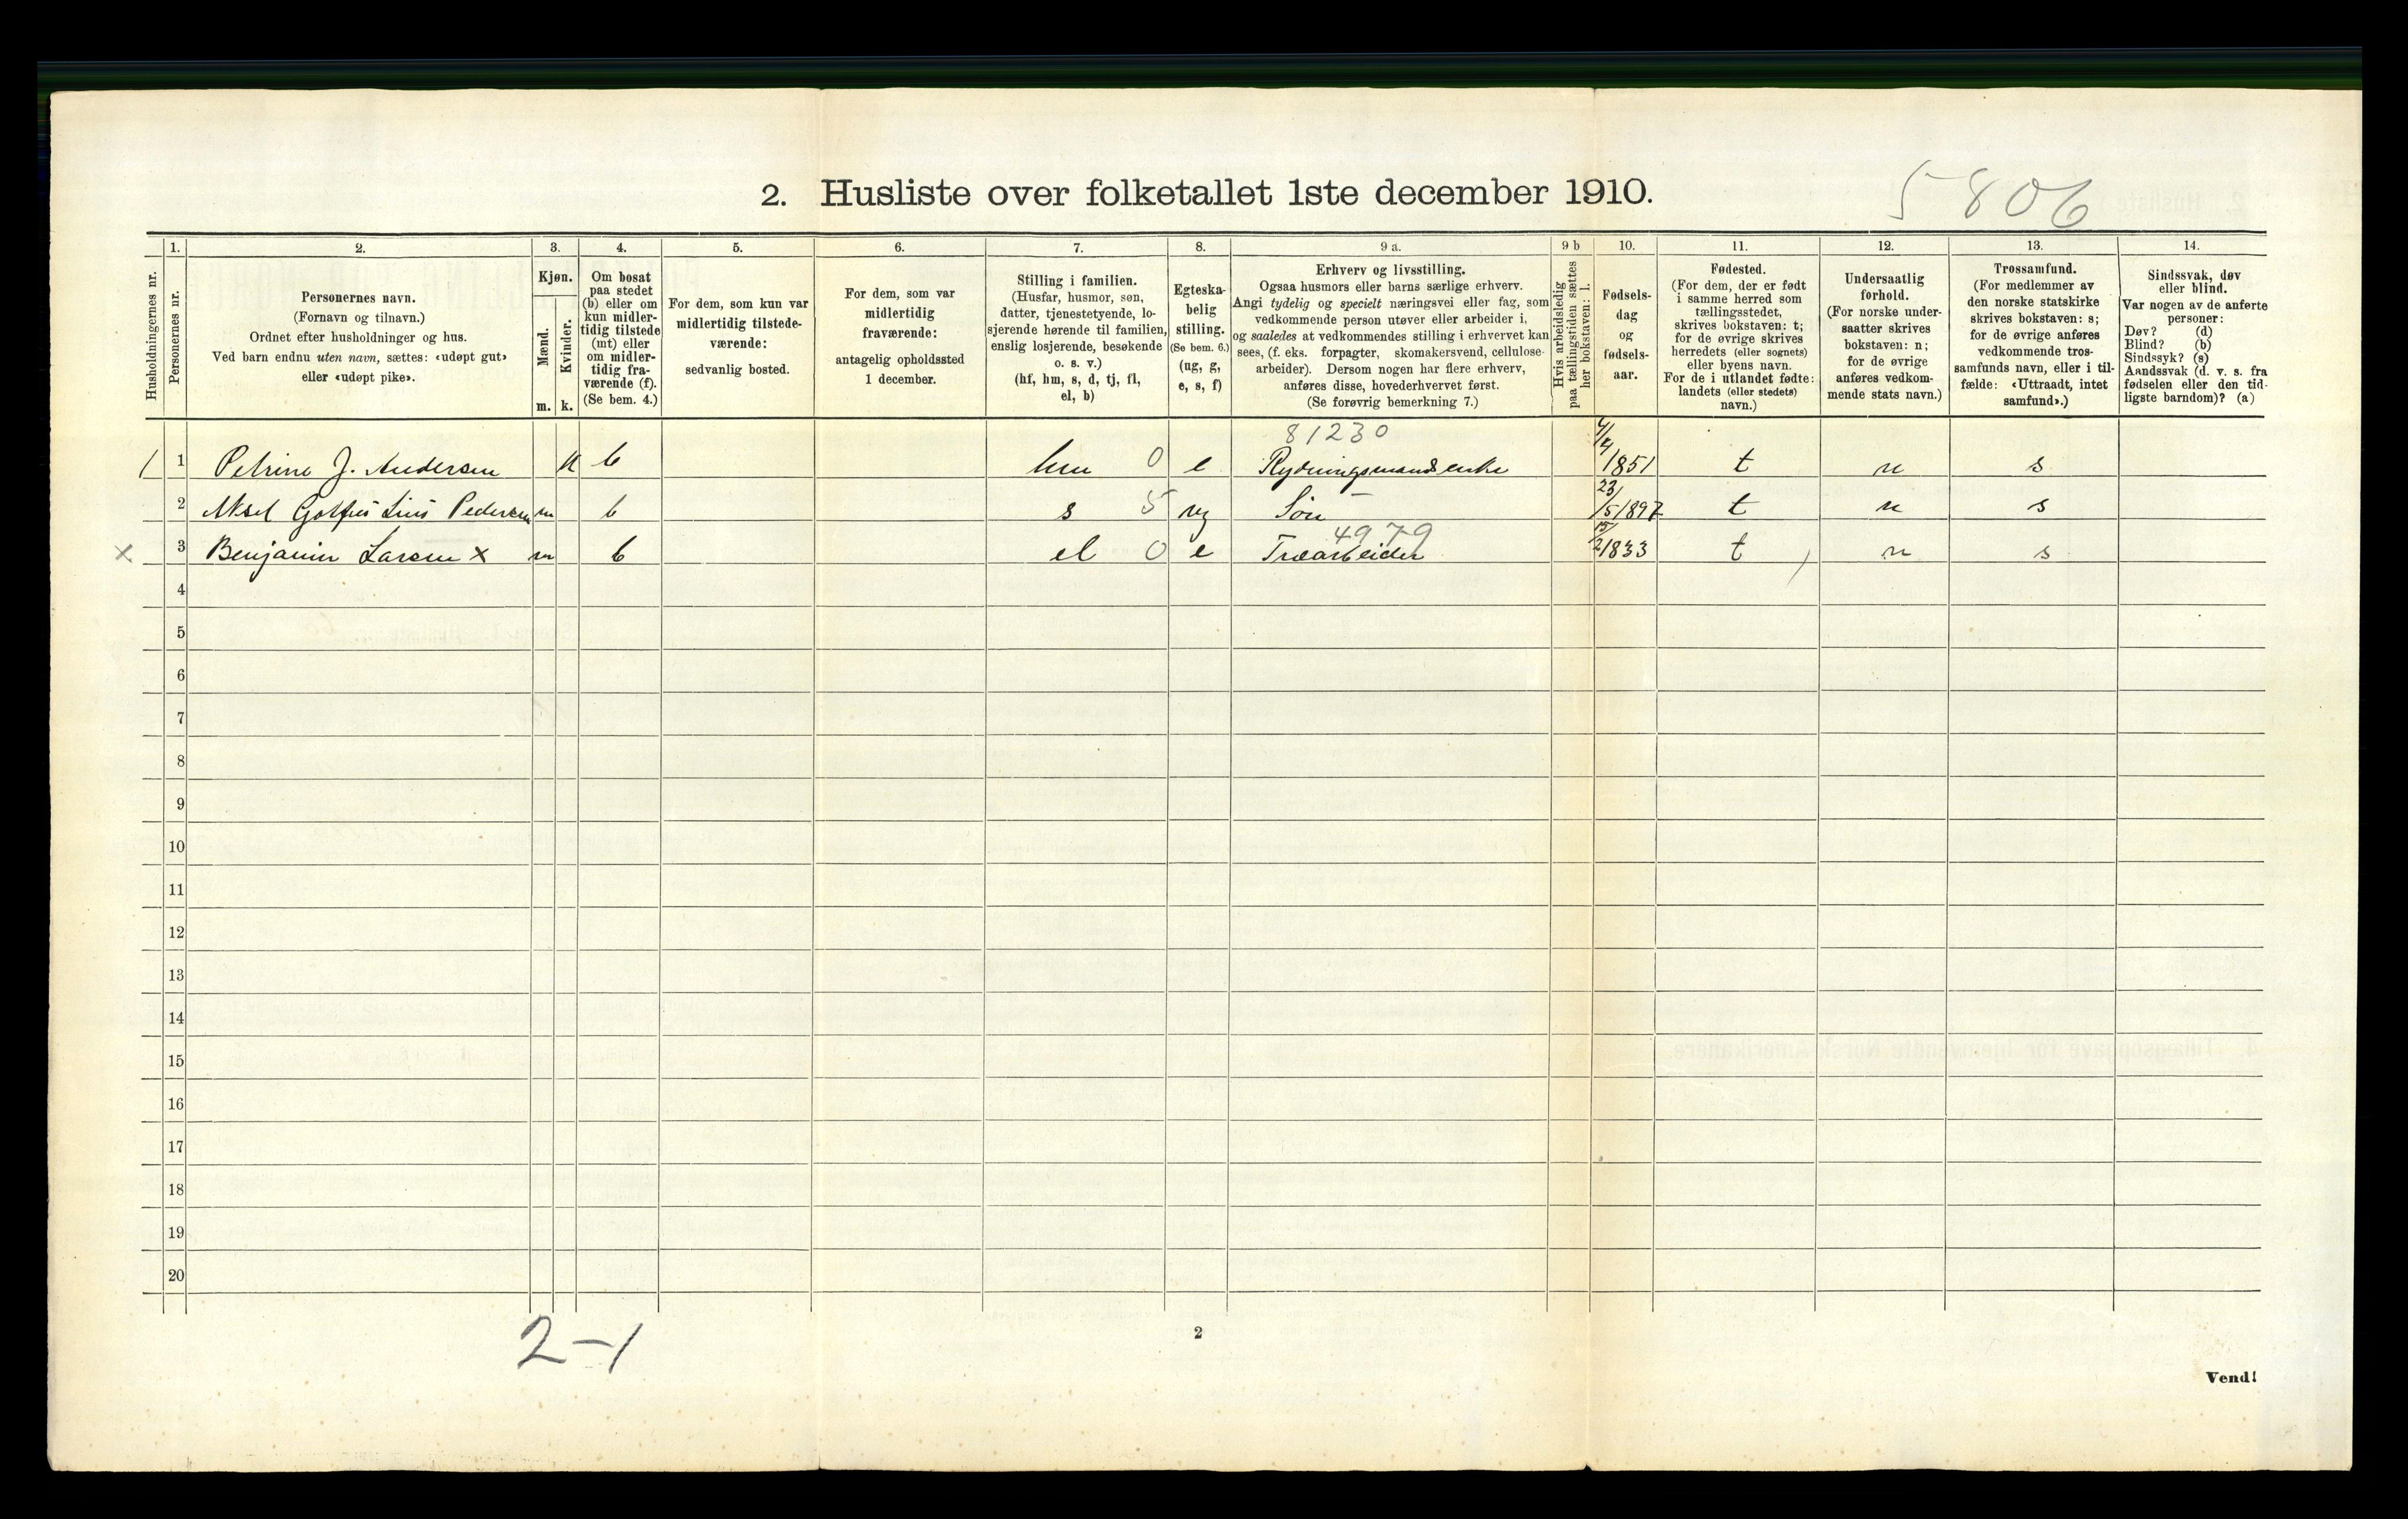 5806
2. Husliste over folketallet 1ste december 1910.
Husholdningernes nr.
1.
Personernes nr.
2.
Personernes navn.
(Fornavn og tilnavn.)
Ordnet efter husholdninger og hus.
Ved barn endnu uten navn, sættes: «udøpt gut»
eller «udøpt pike».
3.
Kjøn.
Mænd.
Kvinder.
m. k.
4.
Om bosat
paa stedet
(b) eller om
kun midler-
tidig tilstede
(mt) eller
om midler-
tidig fra-
værende (f).
(Se bem. 4.)
5.
For dem, som kun var
midlertidig tilstede-
værende:
sedvanlig bosted.
6.
For dem, som var
midlertidig
fraværende:
antagelig opholdssted
1 december.
7.
Stilling i familien.
(Husfar, husmor, søn,
datter, tjenestetyende, lo-
sjerende hørende til familien,
enslig losjerende, besøkende
o. s. v.)
(hf, hm, s, d, tj, fl,
el, b)
8.
Egteska-
belig
stilling.
(Se bem. 6.)
(ug, g,
e, s, f)
9 a.
Erhverv og livsstilling.
Ogsaa husmors eller barns særlige erhverv.
Angi tydelig og specielt næringsvei eller fag, som
vedkommende person utøver eller arbeider i,
og saaledes at vedkommendes stilling i erhvervet kan
sees, (f. eks. forpagter, skomakersvend, cellulose-
arbeider). Dersom nogen har flere erhverv,
anføres disse, hovederhvervet først.
(Se forøvrig bemerkning 7.)
9 b
Hvis arbeidsledig
paa tællingstiden sættes
her bokstaven: l.
10.
Fødsels-
dag
og
fødsels-
aar.
11.
Fødested.
(For dem, der er født
i samme herred som
tællingsstedet,
skrives bokstaven: t;
for de øvrige skrives
herredets (eller sognets)
eller byens navn.
For de i utlandet fødte:
landets (eller stedets)
navn.)
12.
Undersaatlig
forhold.
(For norske under-
saatter skrives
bokstaven: n;
for de øvrige
anføres vedkom-
mende stats navn.)
13.
Trossamfund.
(For medlemmer av
den norske statskirke
skrives bokstaven: s;
for de øvrige anføres
vedkommende tros-
samfunds navn, eller i til-
fælde: «Uttraadt, intet
samfund».)
14.
Sindssvak, døv
eller blind.
Var nogen av de anførte
personer:
Døv? (d)
Blind? (b)
Sindssyk? (s)
Aandssvak (d. v. s. fra
fødselen eller den tid-
ligste barndom)? (a)
81230
1 1 Petrine J. Andersen k b hm 0 e Rydningsmandsenke 4/4 1851 t n s
2 Aksel Pedersen m b s 5 ug Søn – 23/5 1897 t n s
4979
x 3 Benjamin Larsen x m b el 0 e Træarbeider 15/2 1833 t n s
4
5
6
7
8
9
10
11
12
13
14
15
16
17
18
19
20
2–1
2
Vend!